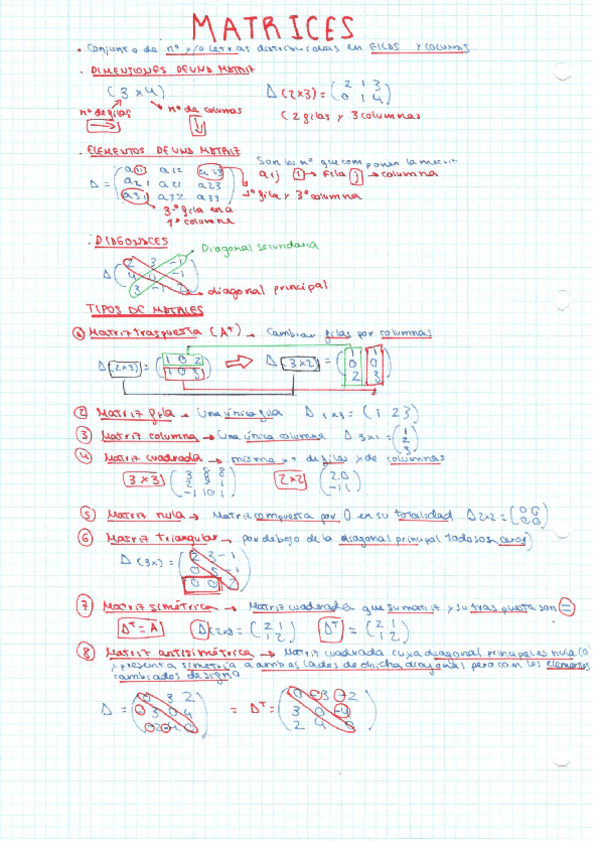 MATRICES
• Conjunto de nº y/o letras distribuidas en FILAS Y COLUMNAS
. DIMENSIONES DE UNA MATRIZ
(3 x 4)
nº de filas
nº de columnas
A (2x3) = ( 2 1 3
0 1 4 )
( 2 filas y 3 columnas
. ELEMENTOS DE UNA MATRIZ
Son los nº que componen la matriz
A = ( a11 a12 a33
a21 a22 a23
a31 a32 a33 )
aij i → Fila j → columna
1º fila y 3º columna
3º fila en a
1º columna
. DIAGONALES
Diagonal secundaria
A ( 2 3 -1
4 0 -1
3 -1 2 )
diagonal principal
TIPOS DE MATRICES
① Matriz traspuesta (Aᵗ) → Cambiar filas por columnas
A (2x3) = ( 1 0 2
1 0 3 ) ⇒ A 3x2 = ( 1 1
0 0
2 3 )
② Matriz fila → Una única fila A 1x3 = ( 1 2 3 )
③ Matriz columna → Una única columna A 3x1 = ( 1
2
3 )
④ Matriz cuadrada → mismo nº de filas y de columnas
3x3 ( 3 8 8
2 5 1
-1 10 1 ) 2x2 ( 2 0
-1 1 )
⑤ Matriz nula → Matriz compuesta por 0 en su totalidad A 2x2 = ( 0 0
0 0 )
⑥ Matriz triangular → por debajo de la diagonal principal todo son ceros )
A (3x) = ( 2 3 -1
0 5 -1
0 0 2 )
⑦ Matriz simétrica → Matriz cuadrada que su matriz y su traspuesta son =
Aᵗ = A A (2x2) = ( 2 1
1 2 ) Aᵗ = ( 2 1
1 2 )
⑧ Matriz antisimétrica → Matriz cuadrada cuya diagonal principal es nula (0)
y presenta simetría a ambos lados de dicha diagonal, pero con los elementos
cambiados de signo
A = ( 0 3 2
-3 0 4
-2 -4 0 ) = Aᵗ = ( 0 -3 -2
3 0 -4
2 4 0 )